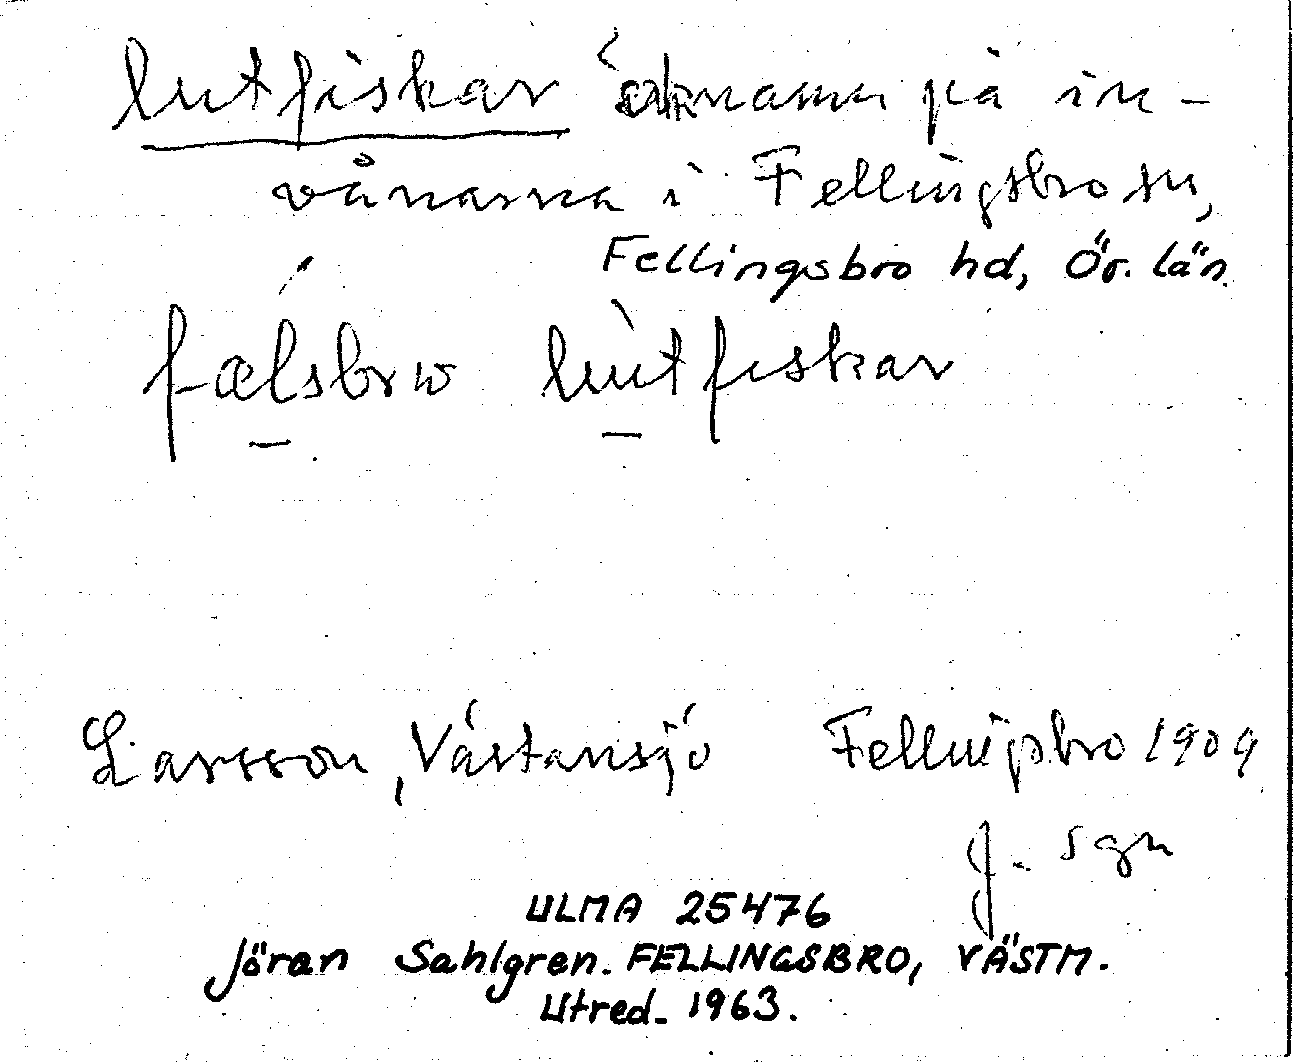 lutfiskar öknamn på in-
vånarna i Fellingsbro sn,
Fellingsbro hd, Ör. län.
fælsbrω lutfiskar
Larsson, Västansjö Fellingsbro 1909
J. Sgn
ULMA 25476
Jöran Sahlgren. FELLINGSBRO, VÄSTM.
Utred. 1963.